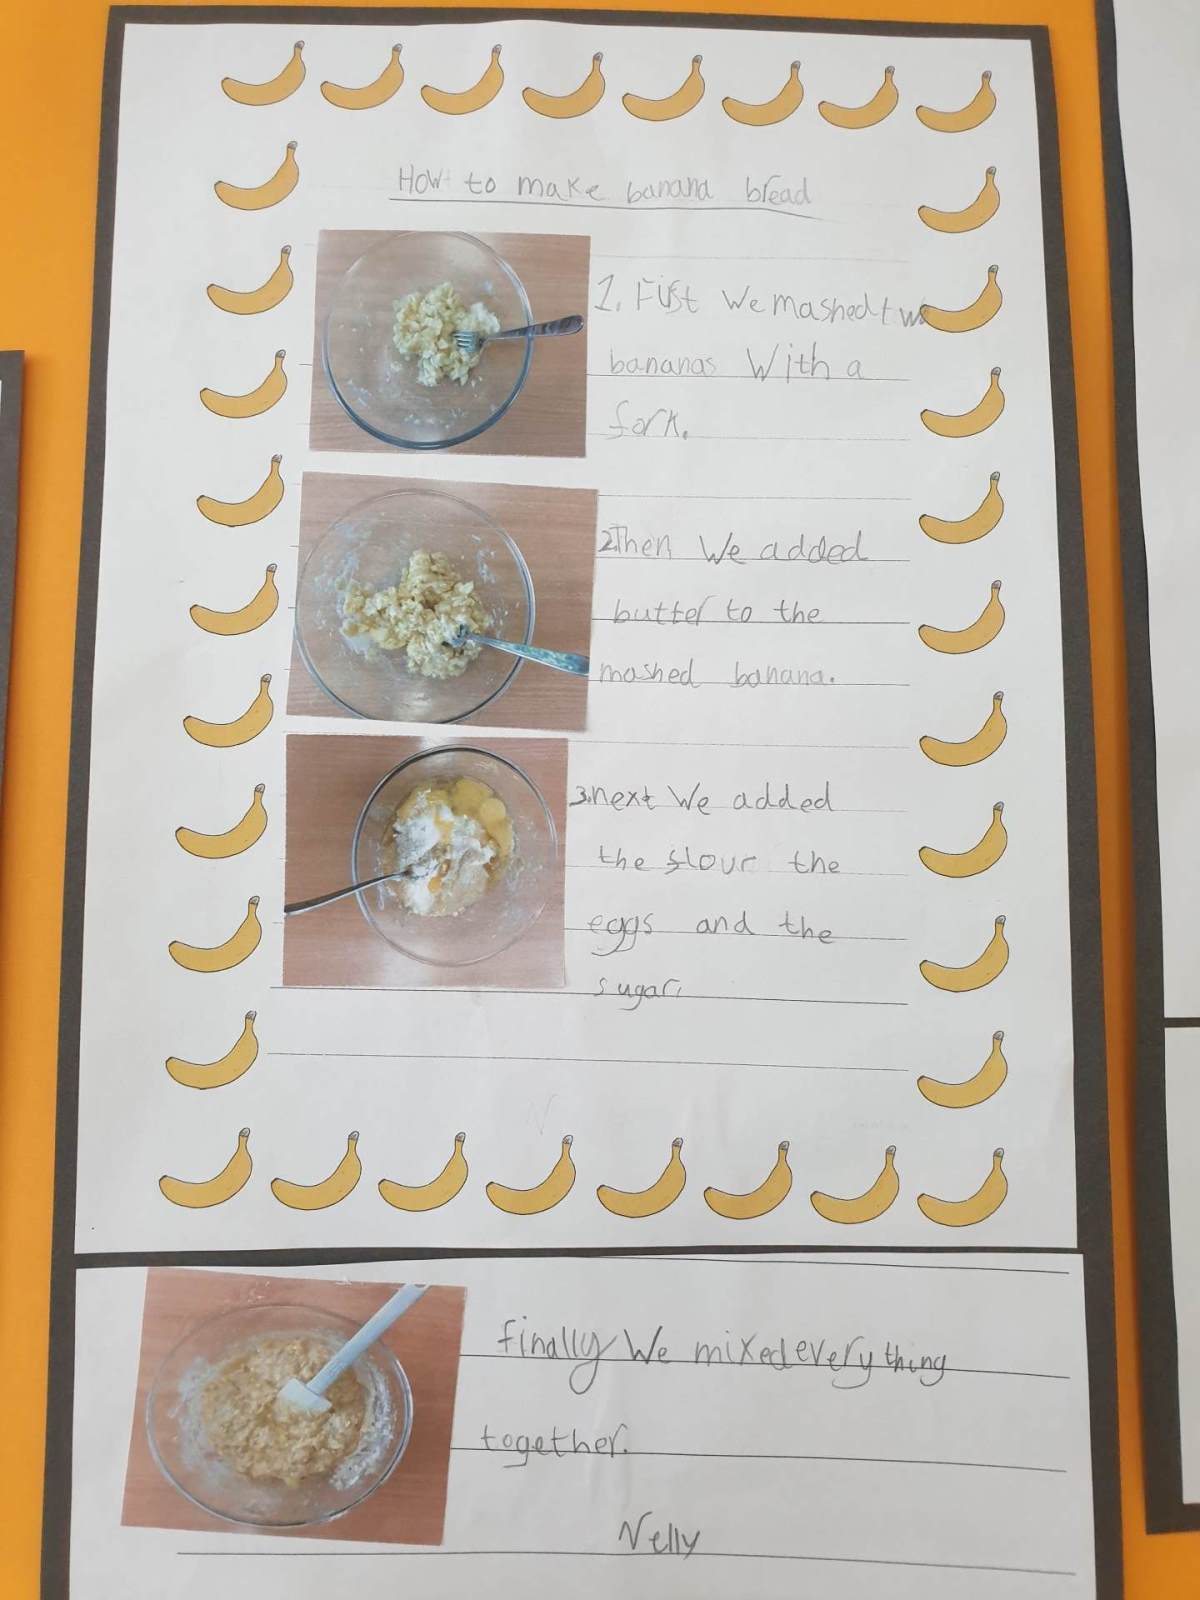 How to make banana bread
1. First we mashed two
bananas with a
fork.
2. Then we added
butter to the
mashed banana.
3. next we added
the flour the
eggs and the
sugar.
finally we mixed every thing
together.
Nelly